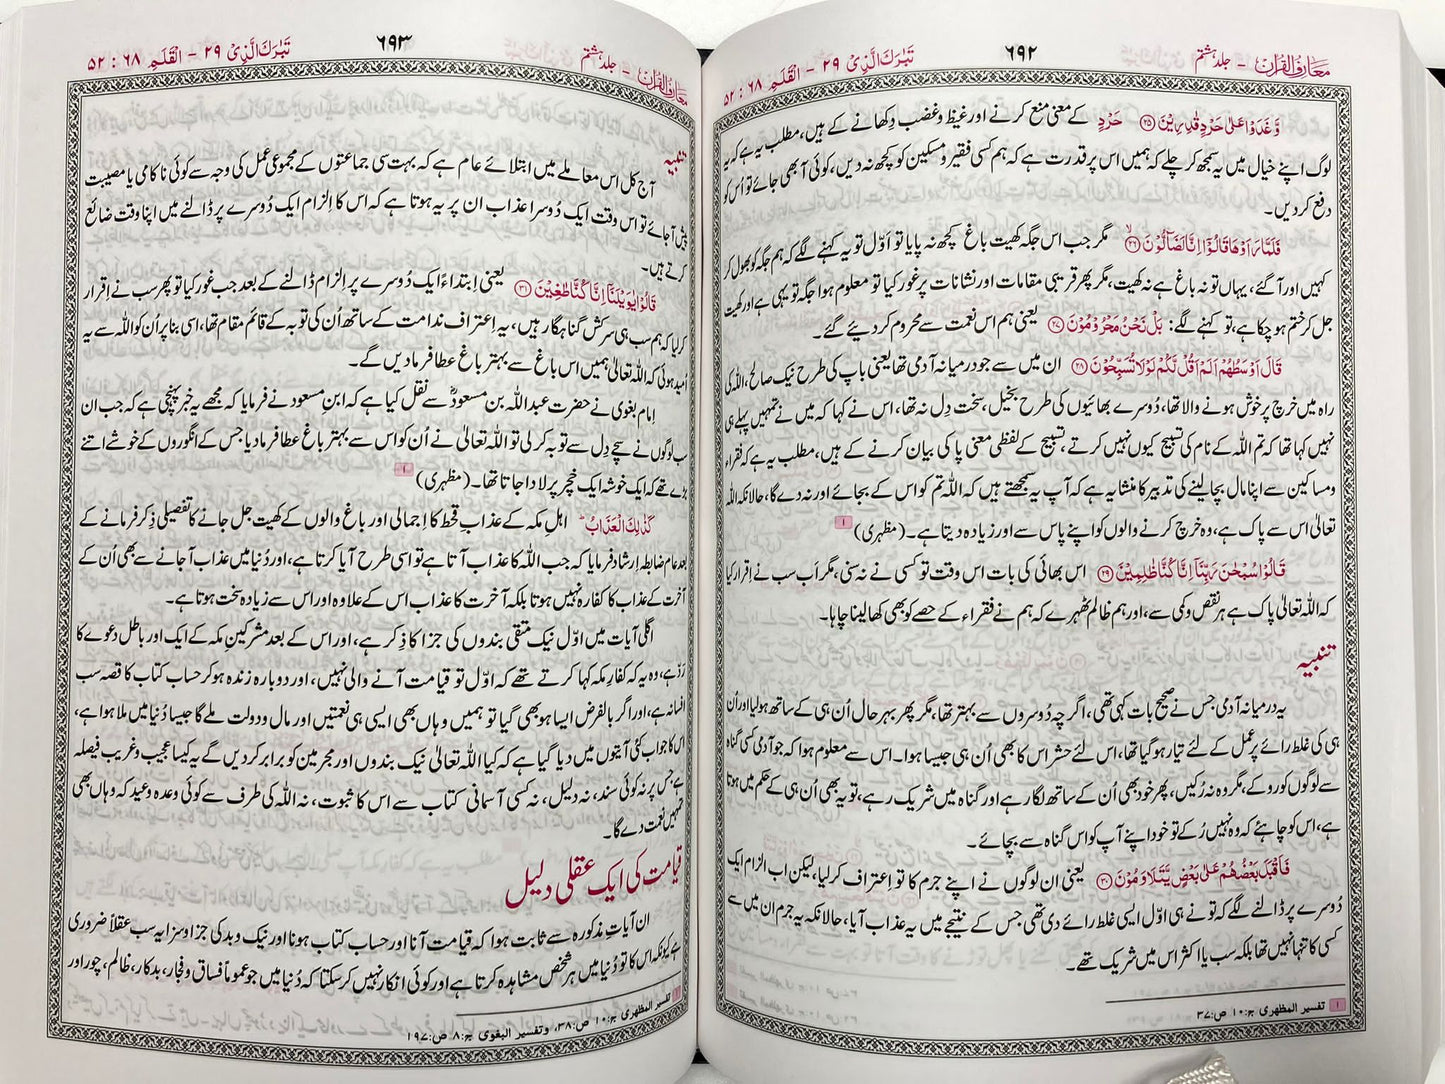 معارف القرآن - جلد ہشتم
۶۹۲
تَبٰرَكَ الَّذِیْ ۲۹ - الْقَلَم ۶۸ : ۵۲
وَّغَدَوْا عَلٰی حَرْدٍ قٰدِرِیْنَ ۲۵ حَرْدٍ کے معنی منع کرنے اور غیظ وغضب دِکھانے کے ہیں، مطلب یہ ہے کہ یہ
لوگ اپنے خیال میں یہ سمجھ کر چلے کہ ہمیں اس پر قدرت ہے کہ ہم کسی فقیر و مسکین کو کچھ نہ دیں، کوئی آبھی جائے تو اُس کو
دفع کردیں۔
فَلَمَّا رَاَوْهَا قَالُوْٓا اِنَّا لَضَآلُّوْنَ ۲۶ مگر جب اس جگہ کھیت باغ کچھ نہ پایا تو اَوّل تو یہ کہنے لگے کہ ہم جگہ کو بھول کر
کہیں اور آگئے، یہاں تو نہ باغ ہے نہ کھیت، مگر پھر قریبی مقامات اور نشانات پر غور کیا تو معلوم ہوا جگہ تو یہی ہے اور کھیت
جل کر ختم ہوچکا ہے، تو کہنے لگے: بَلْ نَحْنُ مَحْرُوْمُوْنَ ۲۷ یعنی ہم اس نعمت سے محروم کر دیئے گئے۔
قَالَ اَوْسَطُهُمْ اَلَمْ اَقُلْ لَّكُمْ لَوْلَا تُسَبِّحُوْنَ ۲۸ ان میں سے جو درمیانہ آدمی تھا یعنی باپ کی طرح نیک صالح، اللہ کی
راہ میں خرچ پر خوش ہونے والا تھا، دُوسرے بھائیوں کی طرح بخیل، سخت دِل نہ تھا، اس نے کہا کہ میں نے تمہیں پہلے ہی
نہیں کہا تھا کہ تم اللہ کے نام کی تسبیح کیوں نہیں کرتے، تسبیح کے لفظی معنی پاکی بیان کرنے کے ہیں، مطلب یہ ہے کہ فقراء
ومساکین سے اپنا مال بچالینے کی تدبیر کا منشا یہ ہے کہ آپ یہ سمجھتے ہیں کہ اللہ تم کو اس کے بجائے اور نہ دے گا، حالانکہ اللہ
تعالیٰ اس سے پاک ہے، وہ خرچ کرنے والوں کو اپنے پاس سے اور زیادہ دیتا ہے۔ (مظہری) ۱
قَالُوْا سُبْحٰنَ رَبِّنَآ اِنَّا كُنَّا ظٰلِمِیْنَ ۲۹ اس بھائی کی بات اس وقت تو کسی نے نہ سنی، مگر اَب سب نے اِقرار کیا
کہ اللہ تعالیٰ پاک ہے ہر نقص وکمی سے، اور ہم ظالم ٹھہرے کہ ہم نے فقراء کے حصے کو بھی کھالینا چاہا۔
تنبیہ
یہ درمیانہ آدمی جس نے صحیح بات کہی تھی، اگرچہ دُوسروں سے بہتر تھا، مگر پھر بہرحال اُن ہی کے ساتھ ہولیا اور اُن
ہی کی غلط رائے پر عمل کے لئے تیار ہوگیا تھا، اس لئے حشر اس کا بھی اُن ہی جیسا ہوا۔ اس سے معلوم ہوا کہ جو آدمی کسی گناہ
سے لوگوں کو روکے، مگر وہ نہ رُکیں، پھر خود بھی اُن کے ساتھ لگا رہے اور گناہ میں شریک رہے، تو یہ بھی اُن ہی کے حکم میں ہوتا
ہے، اس کو چاہئے کہ وہ نہیں رُکے تو خود اپنے آپ کو اس گناہ سے بچائے۔
فَاَقْبَلَ بَعْضُهُمْ عَلٰی بَعْضٍ یَّتَلَاوَمُوْنَ ۳۰ یعنی ان لوگوں نے اپنے جرم کا تو اِعتراف کرلیا، لیکن اب الزام ایک
دُوسرے پر ڈالنے لگے کہ تو نے ہی اوّل ایسی غلط رائے دی تھی جس کے نتیجے میں یہ عذاب آیا، حالانکہ یہ جرم ان میں سے
کسی کا تنہا نہیں تھا بلکہ سب یا اکثر اس میں شریک تھے۔
۱ تفسیر المظہری ج:۱۰ ص:۳۷
معارف القرآن - جلد ہشتم
۶۹۳
تَبٰرَكَ الَّذِیْ ۲۹ - الْقَلَم ۶۸ : ۵۲
تنبیہ
آج کل اس معاملے میں ابتلائے عام ہے کہ بہت سی جماعتوں کے مجموعی عمل کی وجہ سے کوئی ناکامی یا مصیبت
پیش آجائے تو اس وقت ایک دُوسرا عذاب ان پر یہ ہوتا ہے کہ اس کا اِلزام ایک دُوسرے پر ڈالنے میں اپنا وقت ضائع
کرتے ہیں۔
قَالُوْا یٰوَیْلَنَآ اِنَّا كُنَّا طٰغِیْنَ ۳۱ یعنی اِبتداءً ایک دُوسرے پر اِلزام ڈالنے کے بعد جب غور کیا تو پھر سب نے اِقرار
کرلیا کہ ہم سب ہی سرکش گناہگار ہیں، یہ اِعتراف ندامت کے ساتھ اُن کی توبہ کے قائم مقام تھا، اسی بنا پر اُن کو اللہ سے یہ
اُمید ہوئی کہ اللہ تعالیٰ ہمیں اس باغ سے بہتر باغ عطا فرمادیں گے۔
اِمام بغوی نے حضرت عبداللہ بن مسعودؓ سے نقل کیا ہے کہ ابنِ مسعود نے فرمایا کہ مجھے یہ خبر پہنچی ہے کہ جب ان
سب لوگوں نے سچے دِل سے توبہ کرلی تو اللہ تعالیٰ نے اُن کو اس سے بہتر باغ عطا فرمادیا جس کے انگوروں کے خوشے اتنے
بڑے تھے کہ ایک خوشہ ایک خچر پر لادا جاتا تھا۔ (مظہری) ۱
كَذٰلِكَ الْعَذَابُ ؕ اہلِ مکہ کے عذابِ قحط کا اِجمالی اور باغ والوں کے کھیت جل جانے کا تفصیلی ذِکر فرمانے کے
بعد عام ضابطہ اِرشاد فرمایا کہ جب اللہ کا عذاب آتا ہے تو اسی طرح آیا کرتا ہے، اور دُنیا میں عذاب آجانے سے بھی اُن کے
آخرت کے عذاب کا کفارہ نہیں ہوتا بلکہ آخرت کا عذاب اس کے علاوہ اور اس سے زیادہ سخت ہوتا ہے۔
اگلی آیات میں اوّل نیک متقی بندوں کی جزا کا ذِکر ہے، اور اس کے بعد مشرکینِ مکہ کے ایک اور باطل دعوے کا
رَدّ ہے، وہ یہ کہ کفارِ مکہ کہا کرتے تھے کہ اوّل تو قیامت آنے والی نہیں، اور دوبارہ زندہ ہوکر حساب کتاب کا قصہ سب
افسانہ ہے، اور اگر بالفرض ایسا ہو بھی گیا تو ہمیں وہاں بھی ایسی ہی نعمتیں اور مال ودولت ملے گا جیسا دُنیا میں ملا ہوا ہے،
اس کا جواب کئی آیتوں میں دیا گیا ہے کہ کیا اللہ تعالیٰ نیک بندوں اور مجرمین کو برابر کردیں گے یہ کیسا عجیب وغریب فیصلہ
ہے جس پر نہ کوئی سند، نہ دلیل، نہ کسی آسمانی کتاب سے اس کا ثبوت، نہ اللہ کی طرف سے کوئی وعدہ وعید کہ وہاں بھی
تمہیں نعمت دے گا۔
قیامت کی ایک عقلی دلیل
ان آیاتِ مذکورہ سے ثابت ہوا کہ قیامت آنا اور حساب کتاب ہونا اور نیک وبد کی جزا وسزا یہ سب عقلاً ضروری
ہے کیونکہ اس کا تو دُنیا میں ہر شخص مشاہدہ کرتا ہے اور کوئی انکار نہیں کرسکتا کہ دُنیا میں جو عموماً فساق وفجار، بدکار، ظالم، چور اور
۱ تفسیر المظہری ج:۱۰ ص:۳۸، وتفسیر البغوی ج:۸ ص:۱۹۷